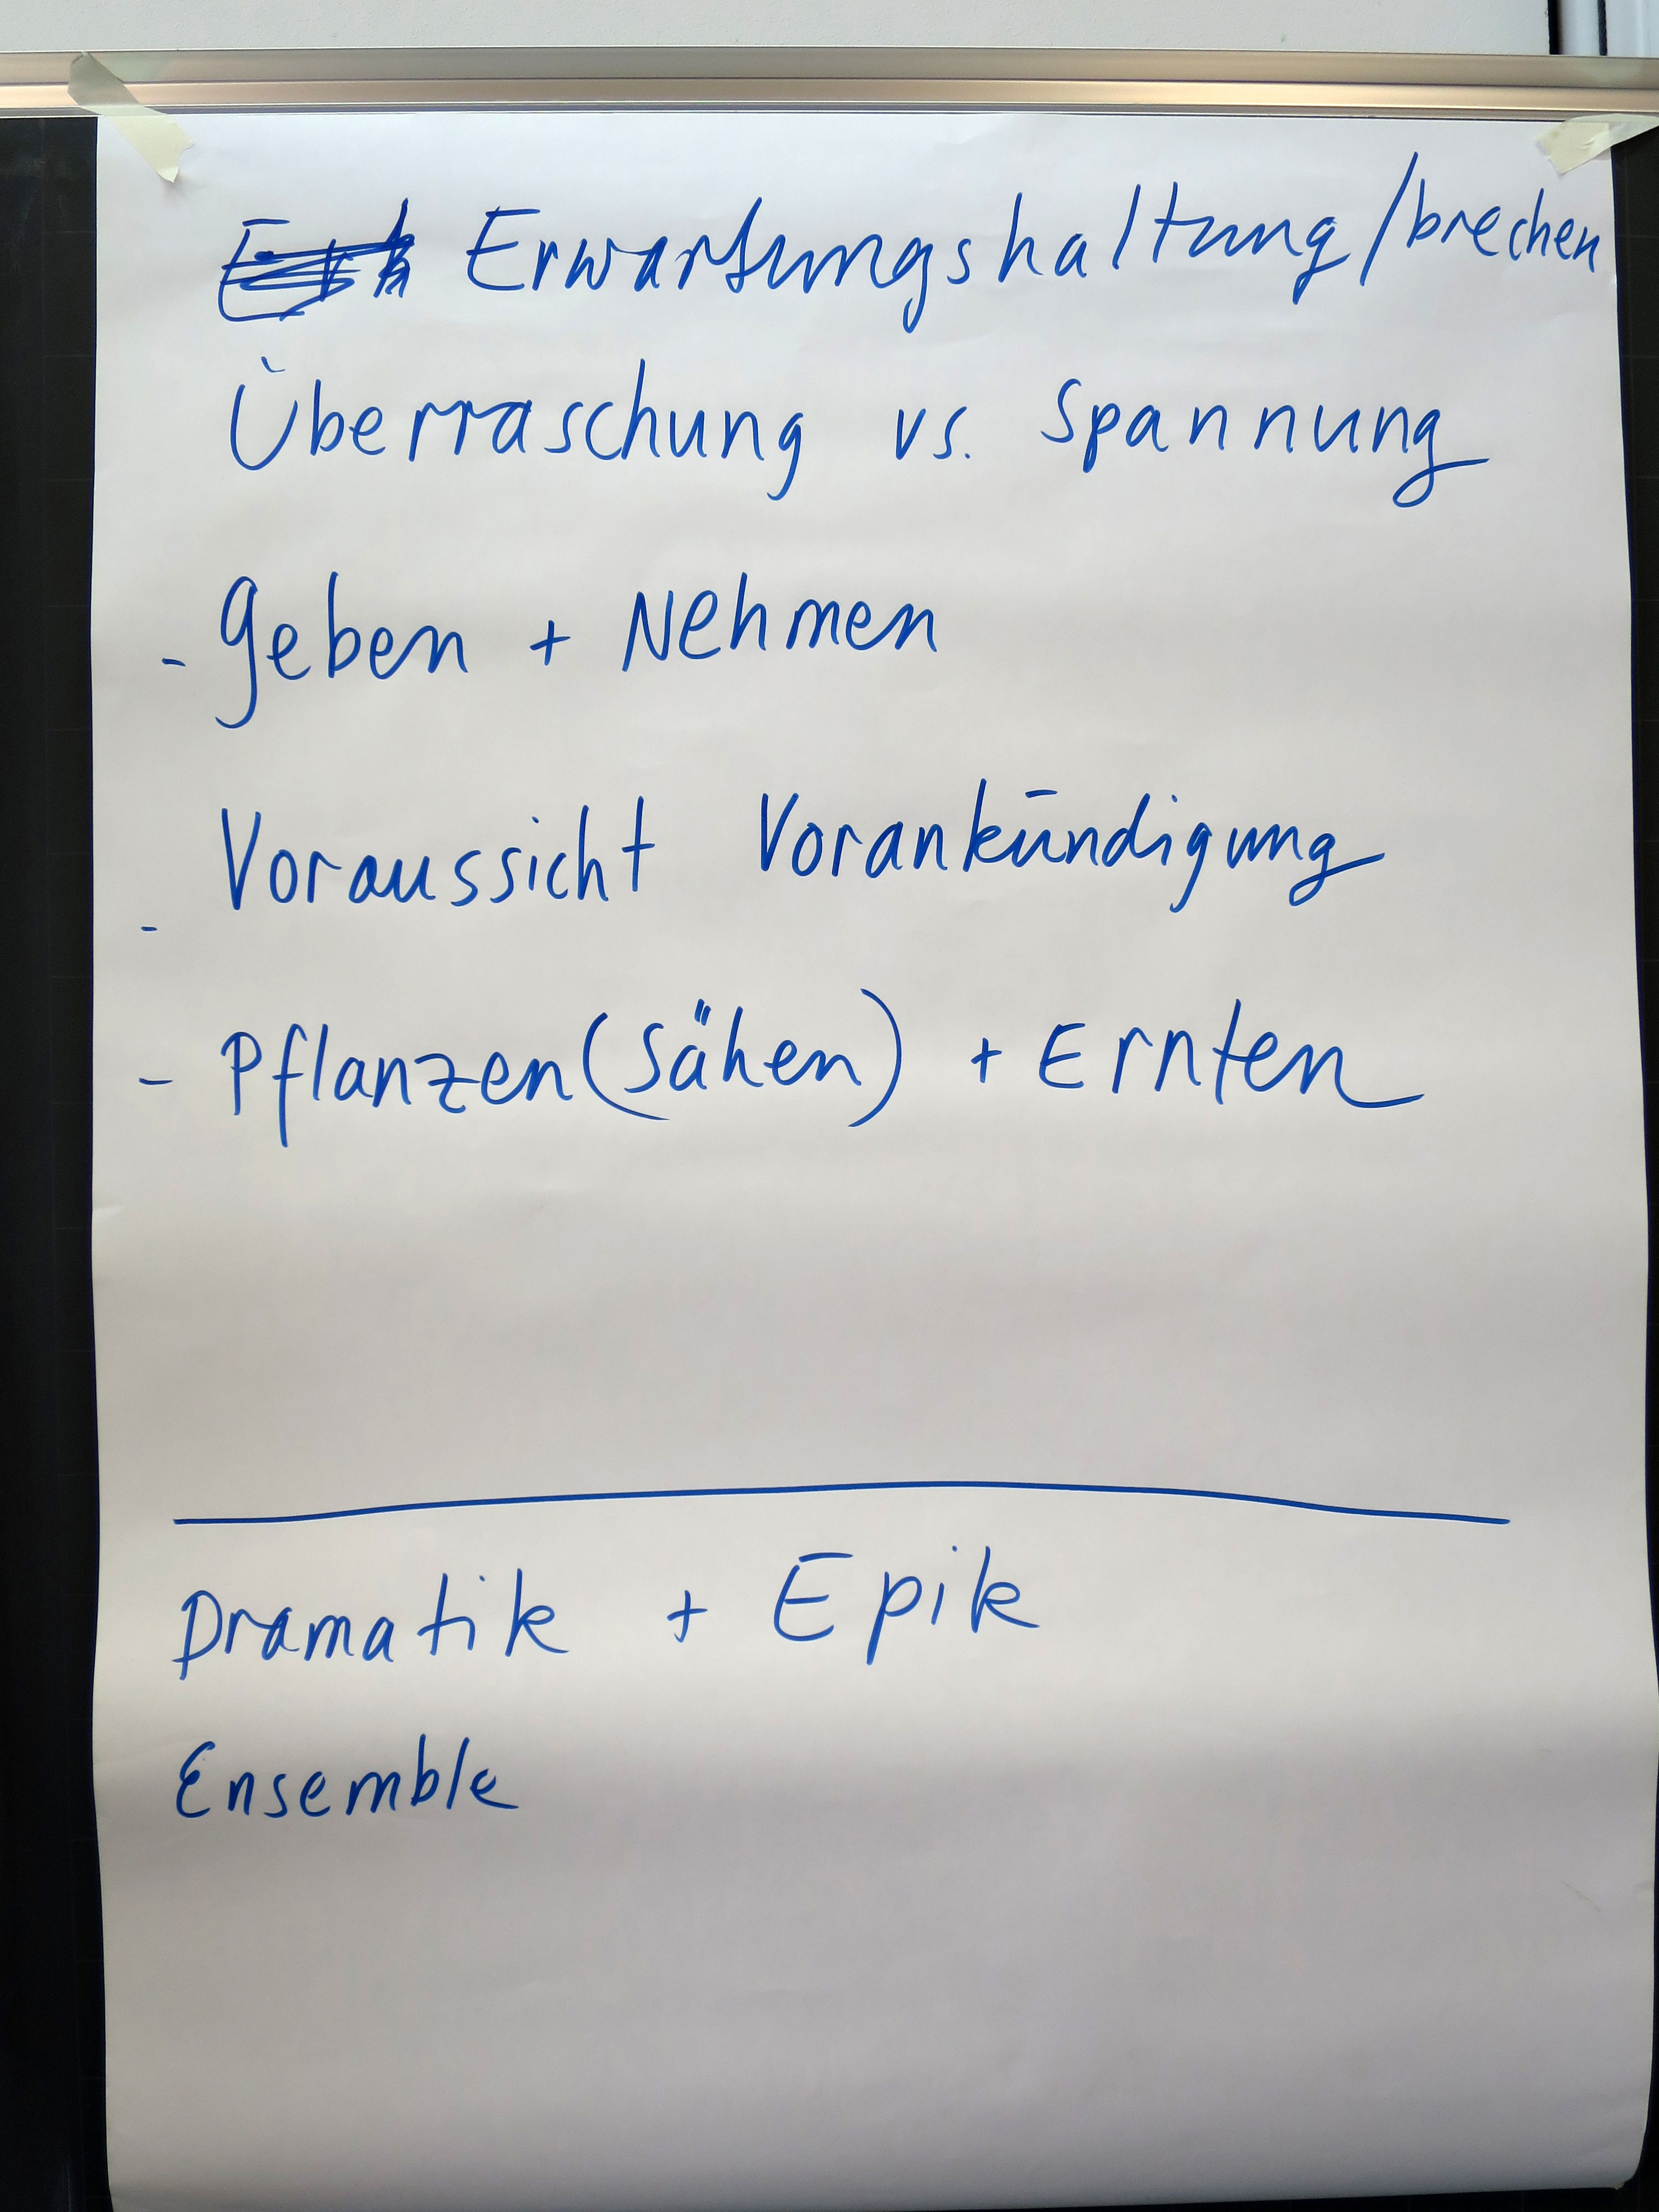 Erwartungshaltung/brechen
Überraschung vs. Spannung
- Geben + Nehmen
- Voraussicht Vorankündigung
- Pflanzen (Sähen) + Ernten
Dramatik + Epik
Ensemble